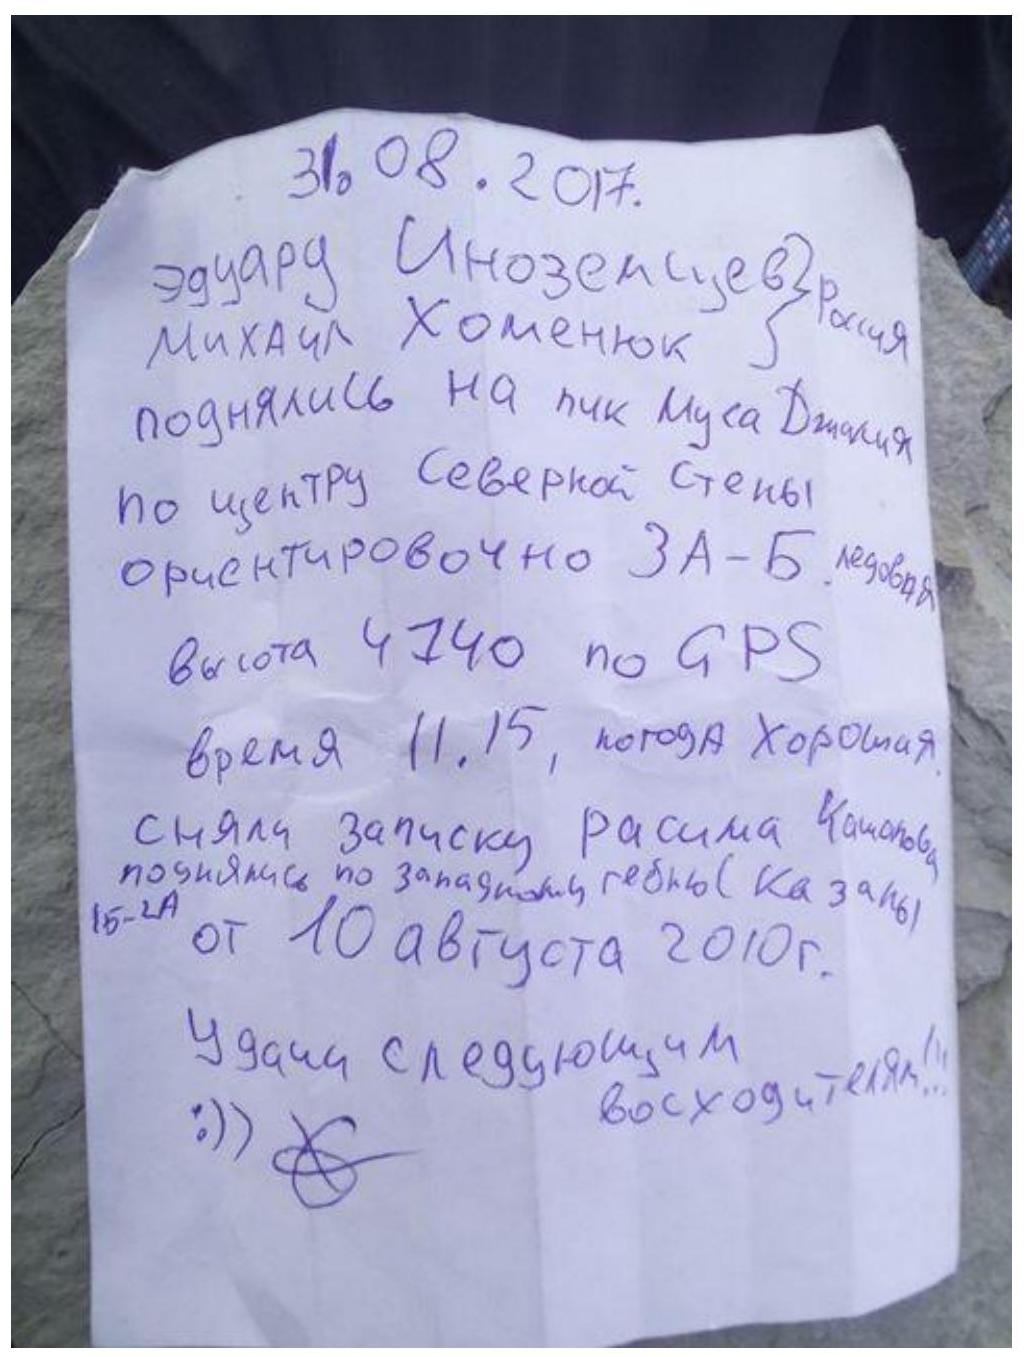 31.08.2017.
Эдуард Иноземцев } Россия
Михаил Хоменюк
поднялись на пик Муса Джалиля
по центру Северной Стены
ориентировочно 3А-Б. ледовая
высота 4740 по GPS
время 11.15, погода хорошая.
сняли записку Расима Кашапова
поднялись по западному гебню (Казань)
1Б-2А
от 10 августа 2010г.
Удачи следующим
восходителям!!!
:))